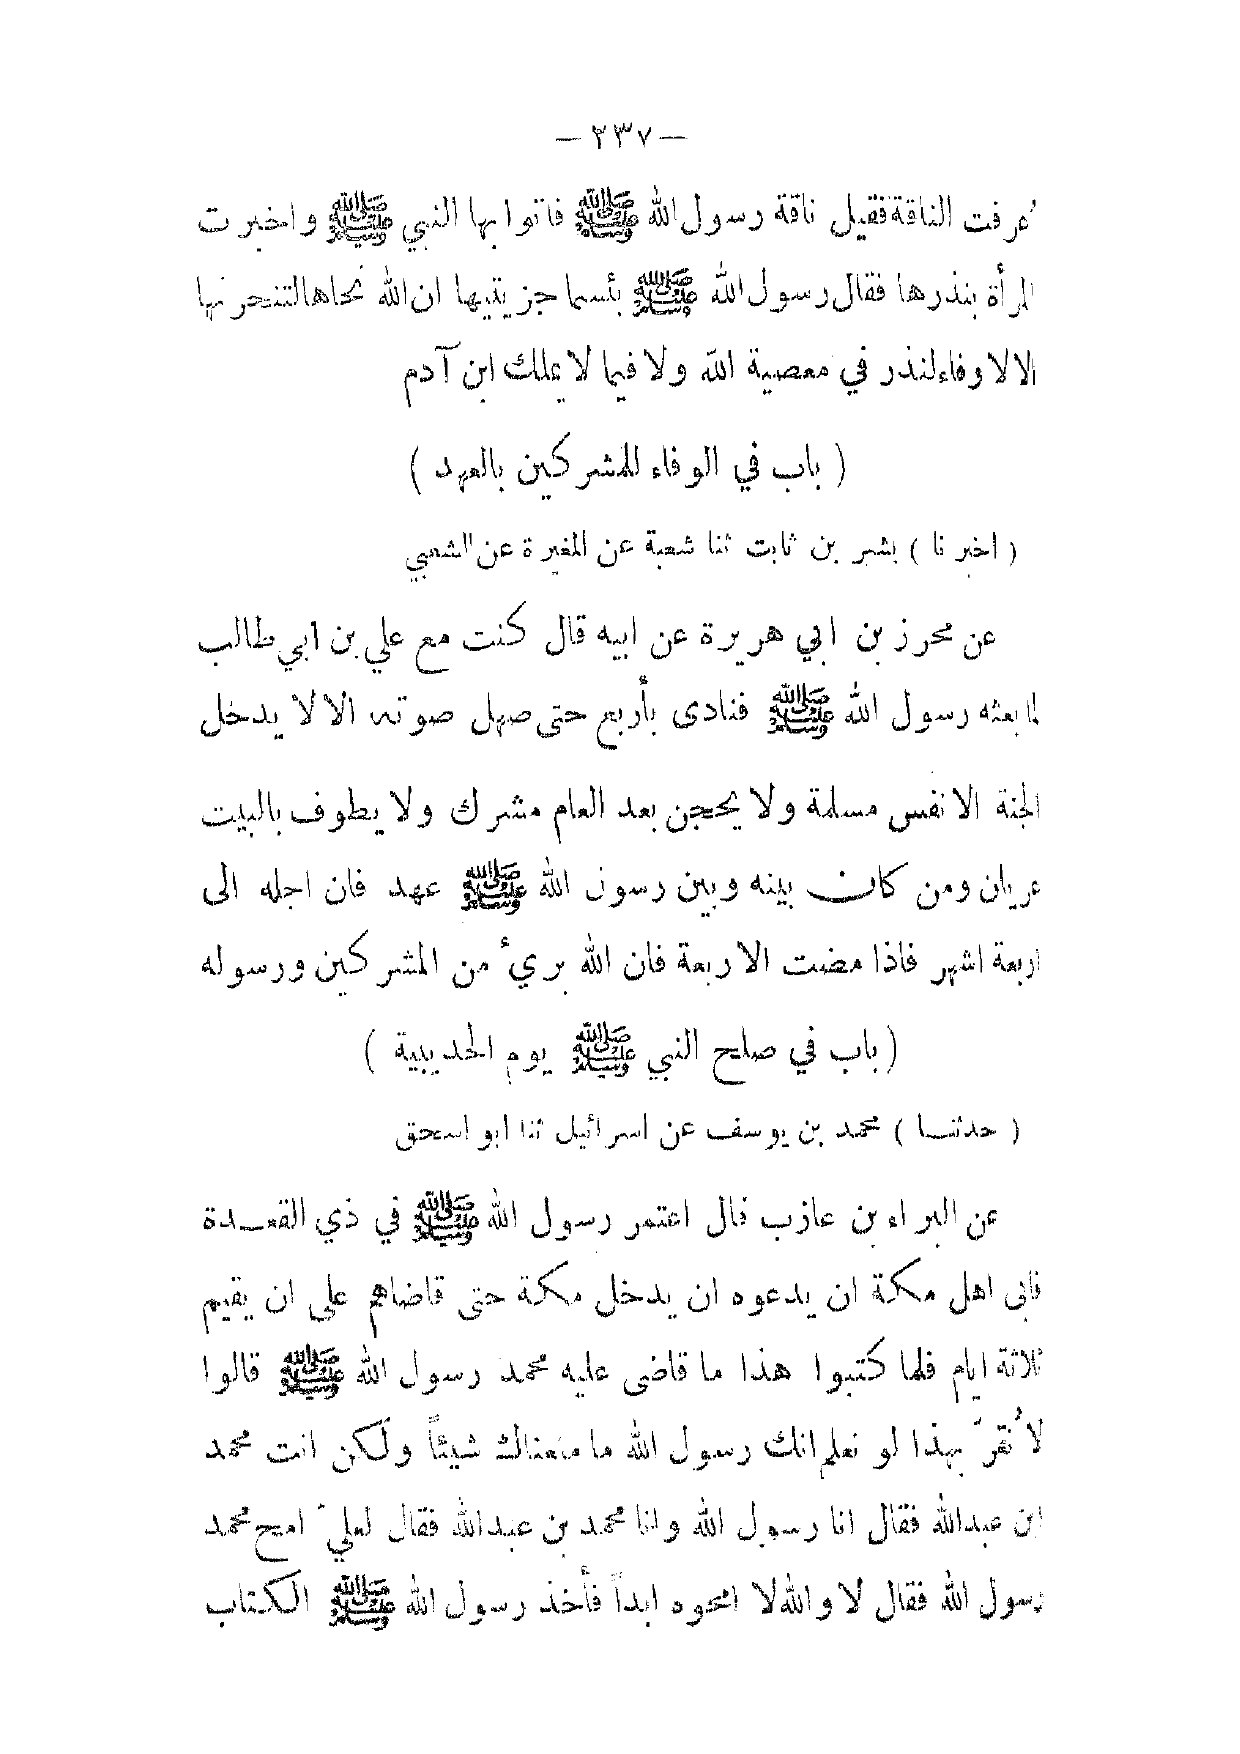 — ٢٣٧ —
عرفت الناقة فقيل ناقة رسول الله ﷺ فاتوا بها النبي ﷺ واخبرت
المرأة بنذرها فقال رسول الله ﷺ بئسما جزيتيها ان الله نجاها لتنحرنها
الا لا وفاء لنذر في معصية الله ولا فيما لا يملك ابن آدم
( باب في الوفاء للمشركين بالعهد )
( اخبرنا ) بشر بن ثابت ثنا شعبة عن المغيرة عن الشعبي
عن محرز بن ابي هريرة عن ابيه قال كنت مع علي بن ابي طالب
لما بعثه رسول الله ﷺ فنادى بأربع حتى صهل صوته الا لا يدخل
الجنة الا نفس مسلمة ولا يحجن بعد العام مشرك ولا يطوف بالبيت
عريان ومن كان بينه وبين رسول الله ﷺ عهد فان اجله الى
اربعة اشهر فاذا مضت الاربعة فان الله بريء من المشركين ورسوله
( باب في صلح النبي ﷺ يوم الحديبية )
( حدثنا ) محمد بن يوسف عن اسرائيل ثنا ابو اسحق
عن البراء بن عازب قال اعتمر رسول الله ﷺ في ذي القعدة
فابى اهل مكة ان يدعوه ان يدخل مكة حتى قاضاهم على ان يقيم
ثلاثة ايام فلما كتبوا هذا ما قاضى عليه محمد رسول الله ﷺ قالوا
لا نُقرّ بهذا لو نعلم انك رسول الله ما منعناك شيئاً ولكن انت محمد
ابن عبدالله فقال انا رسول الله وانا محمد بن عبدالله فقال لعلي امح محمد
رسول الله فقال لا والله لا امحوه ابداً فأخذ رسول الله ﷺ الكتاب